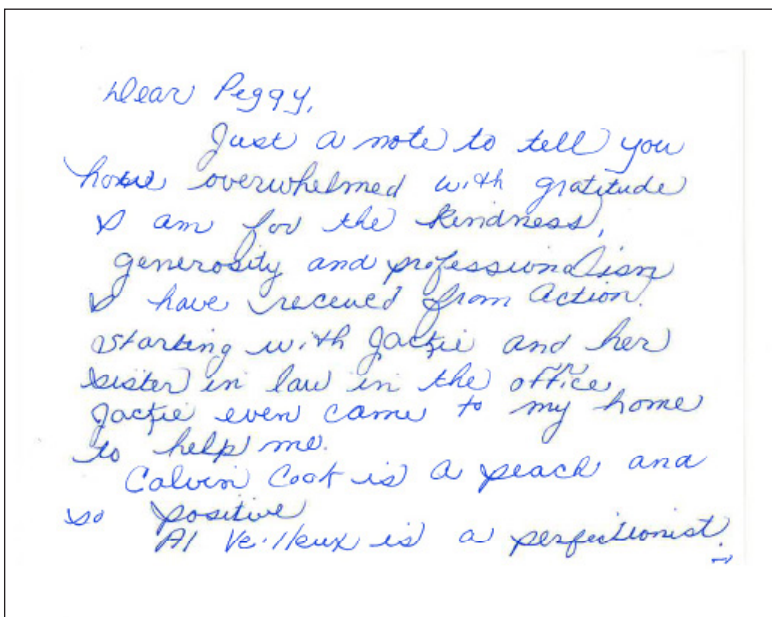 Dear Peggy,
Just a note to tell you
how overwhelmed with gratitude
I am for the kindness,
generosity and professionalism
I have received from Action.
Starting with Jackie and her
sister in law in the office
Jackie even came to my home
to help me.
Calvin Cook is a peach and
so positive
Al Veilleux is a perfectionist.
→